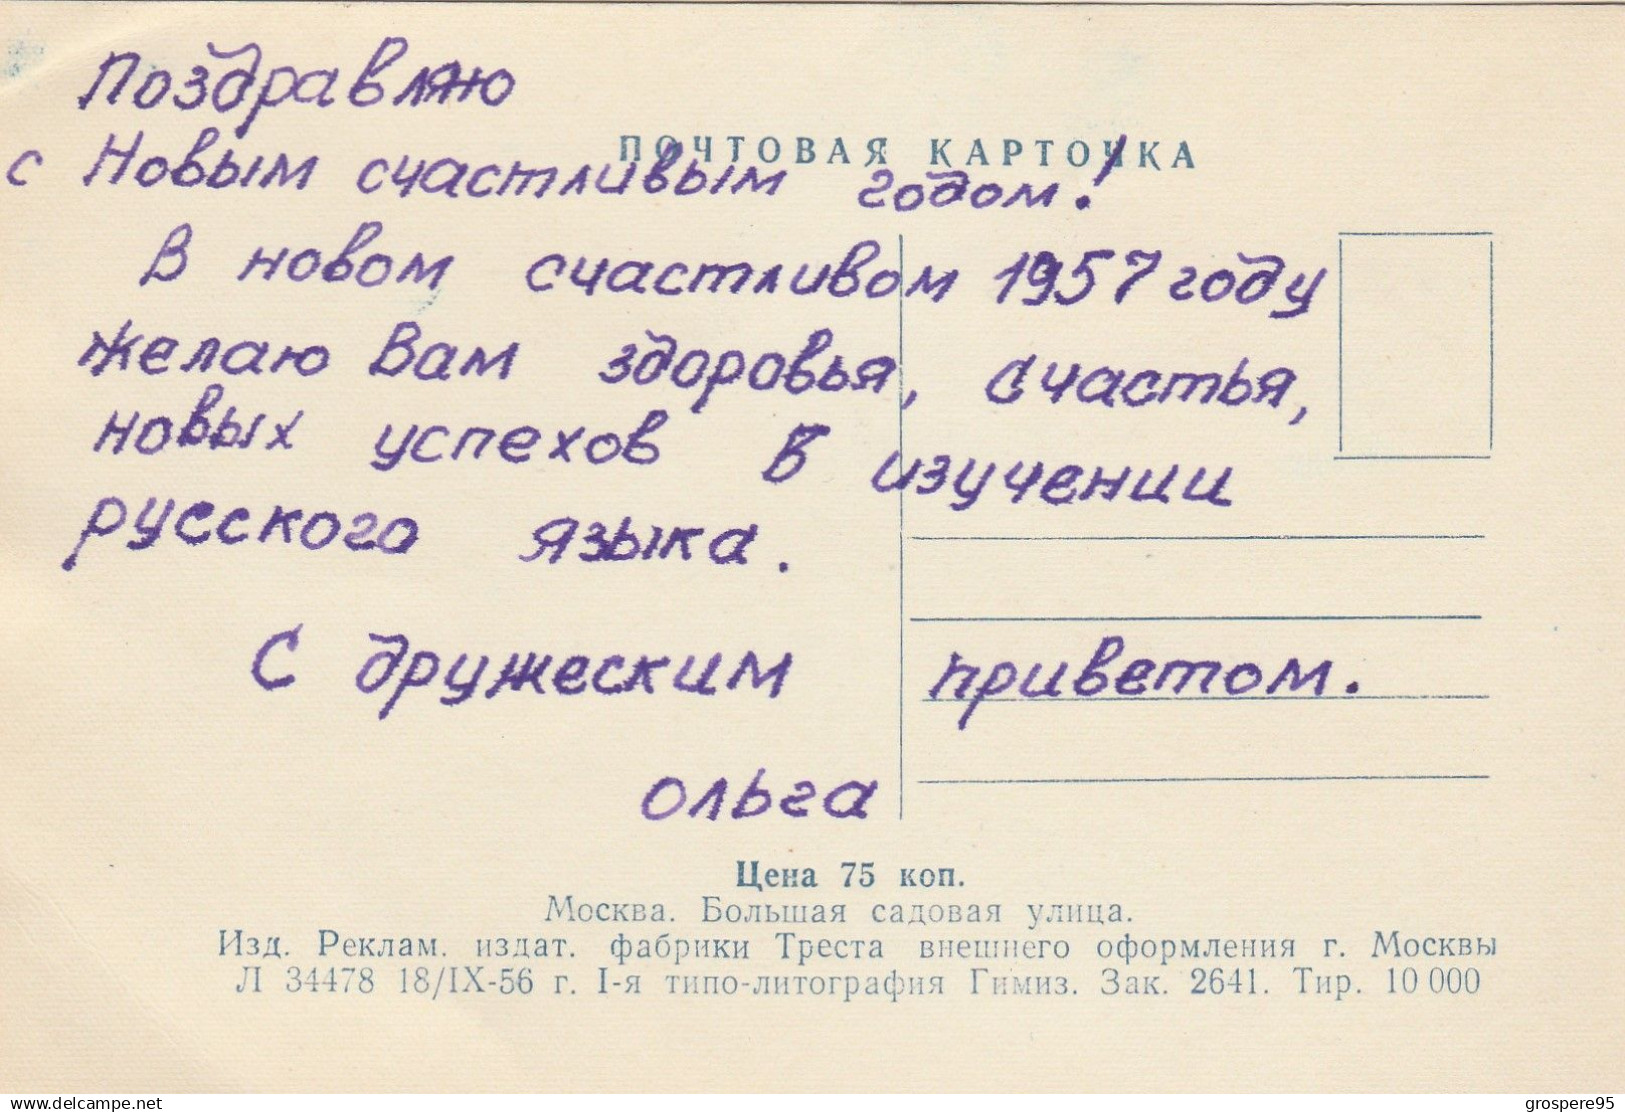 Поздравляю
ПОЧТОВАЯ КАРТОЧКА
с Новым счастливым годом!
В новом счастливом 1957 году
желаю Вам здоровья, счастья,
новых успехов в изучении
русского языка.
С дружеским приветом.
Ольга
Цена 75 коп.
Москва. Большая садовая улица.
Изд. Реклам. издат. фабрики Треста внешнего оформления г. Москвы
Л 34478 18/IX-56 г. 1-я типо-литография Гимиз. Зак. 2641. Тир. 10 000
www.delcampe.net
grospere95